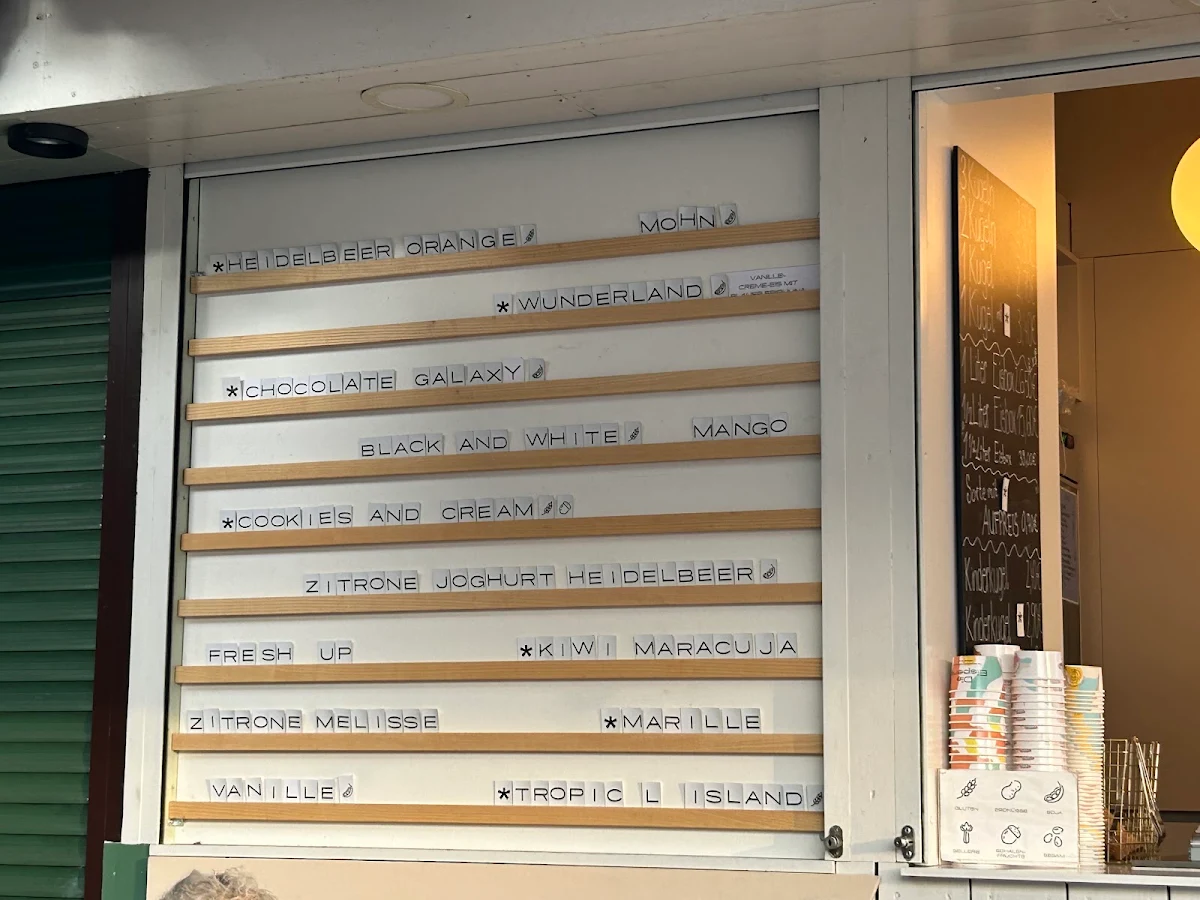 *HEIDELBEER ORANGE MOHN
*WUNDERLAND VANILLE-
CREME-EIS MIT
*CHOCOLATE GALAXY
BLACK AND WHITE MANGO
*COOKIES AND CREAM
ZITRONE JOGHURT HEIDELBEER
FRESH UP *KIWI MARACUJA
ZITRONE MELISSE *MARILLE
VANILLE *TROPIC L ISLAND
3 Kugeln
2 Kugeln
1 Kugel
1 Kugel
1 Liter Eisbox
Liter Eisbox
Eisbox
Sorte mit
AUFPREIS
Kinderkugel
Kinderkugel
GLUTEN ERDNÜSSE SOJA
SELLERIE SCHALEN-
FRÜCHTE SESAM